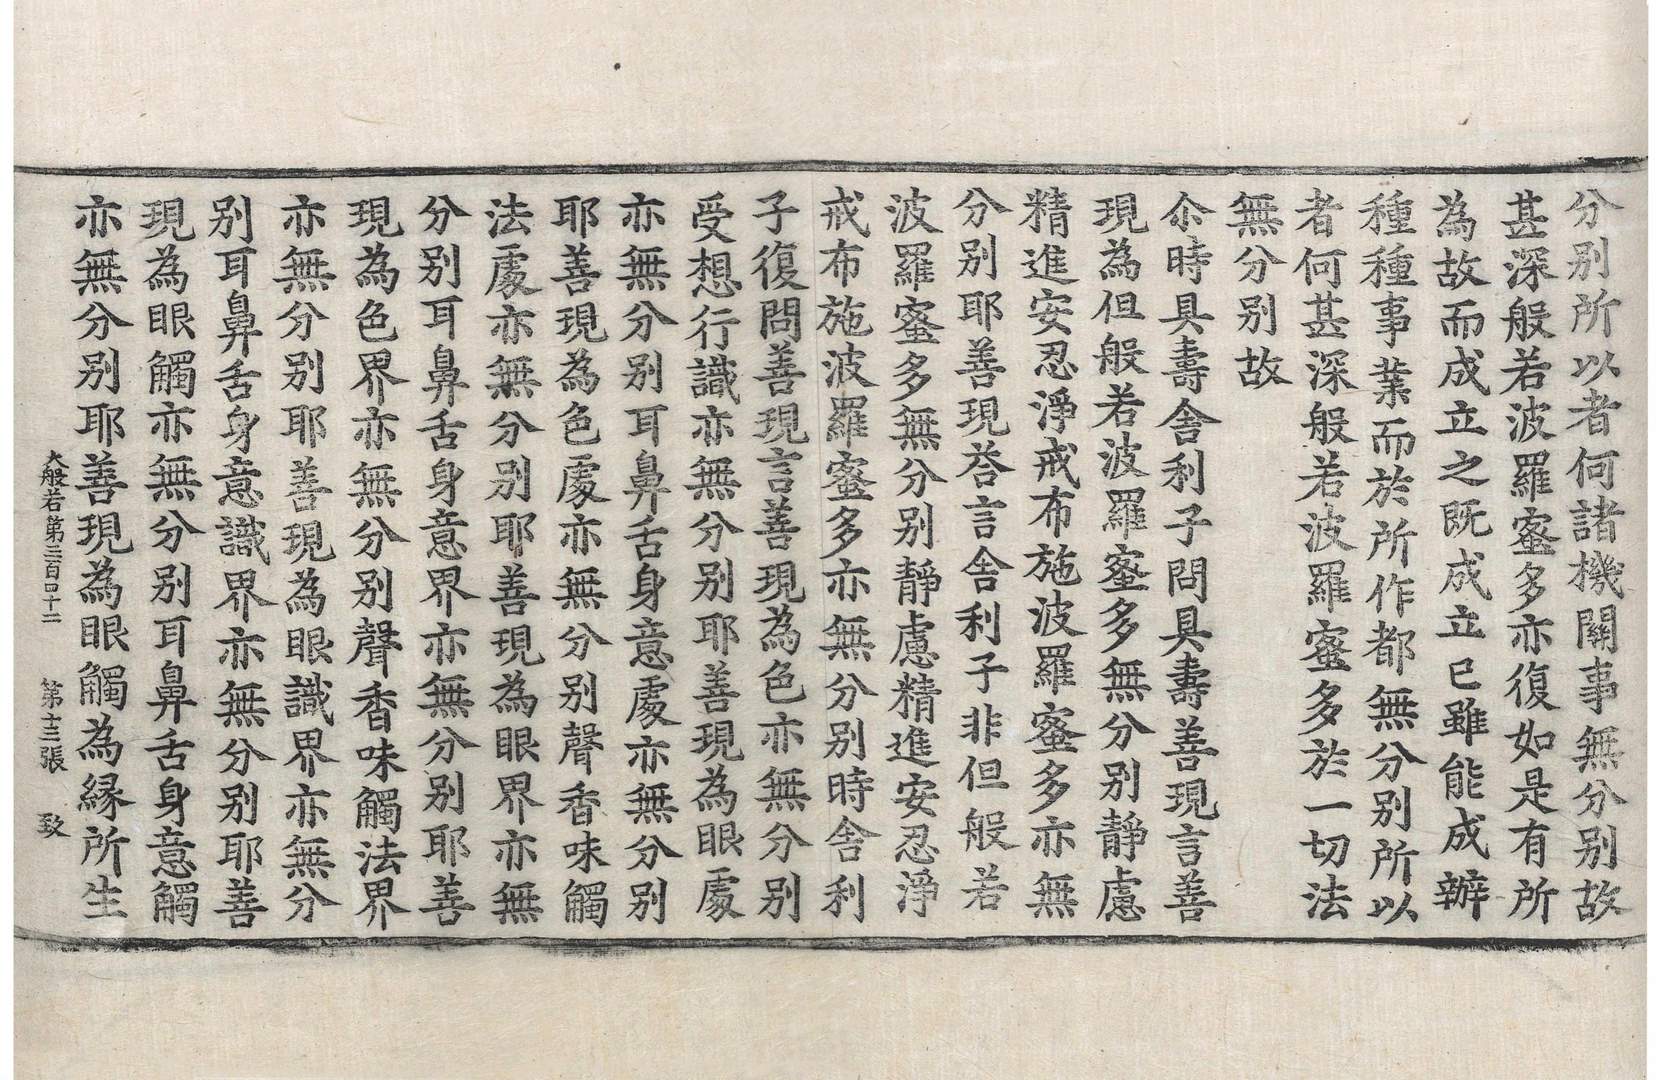 分別所以者何諸機關事無分別故
甚深般若波羅蜜多亦復如是有所
為故而成立之既成立已雖能成辦
種種事業而於所作都無分別所以
者何甚深般若波羅蜜多於一切法
無分別故
尒時具壽舍利子問具壽善現言善
現為但般若波羅蜜多無分別靜慮
精進安忍淨戒布施波羅蜜多亦無
分別耶善現荅言舍利子非但般若
波羅蜜多無分別靜慮精進安忍淨
戒布施波羅蜜多亦無分別時舍利
子復問善現言善現為色亦無分別
受想行識亦無分別耶善現為眼處
亦無分別耳鼻舌身意處亦無分別
耶善現為色處亦無分別聲香味觸
法處亦無分別耶善現為眼界亦無
分別耳鼻舌身意界亦無分別耶善
現為色界亦無分別聲香味觸法界
亦無分別耶善現為眼識界亦無分
別耳鼻舌身意識界亦無分別耶善
現為眼觸亦無分別耳鼻舌身意觸
亦無分別耶善現為眼觸為緣所生
大般若第三百四十二 第十三張 致